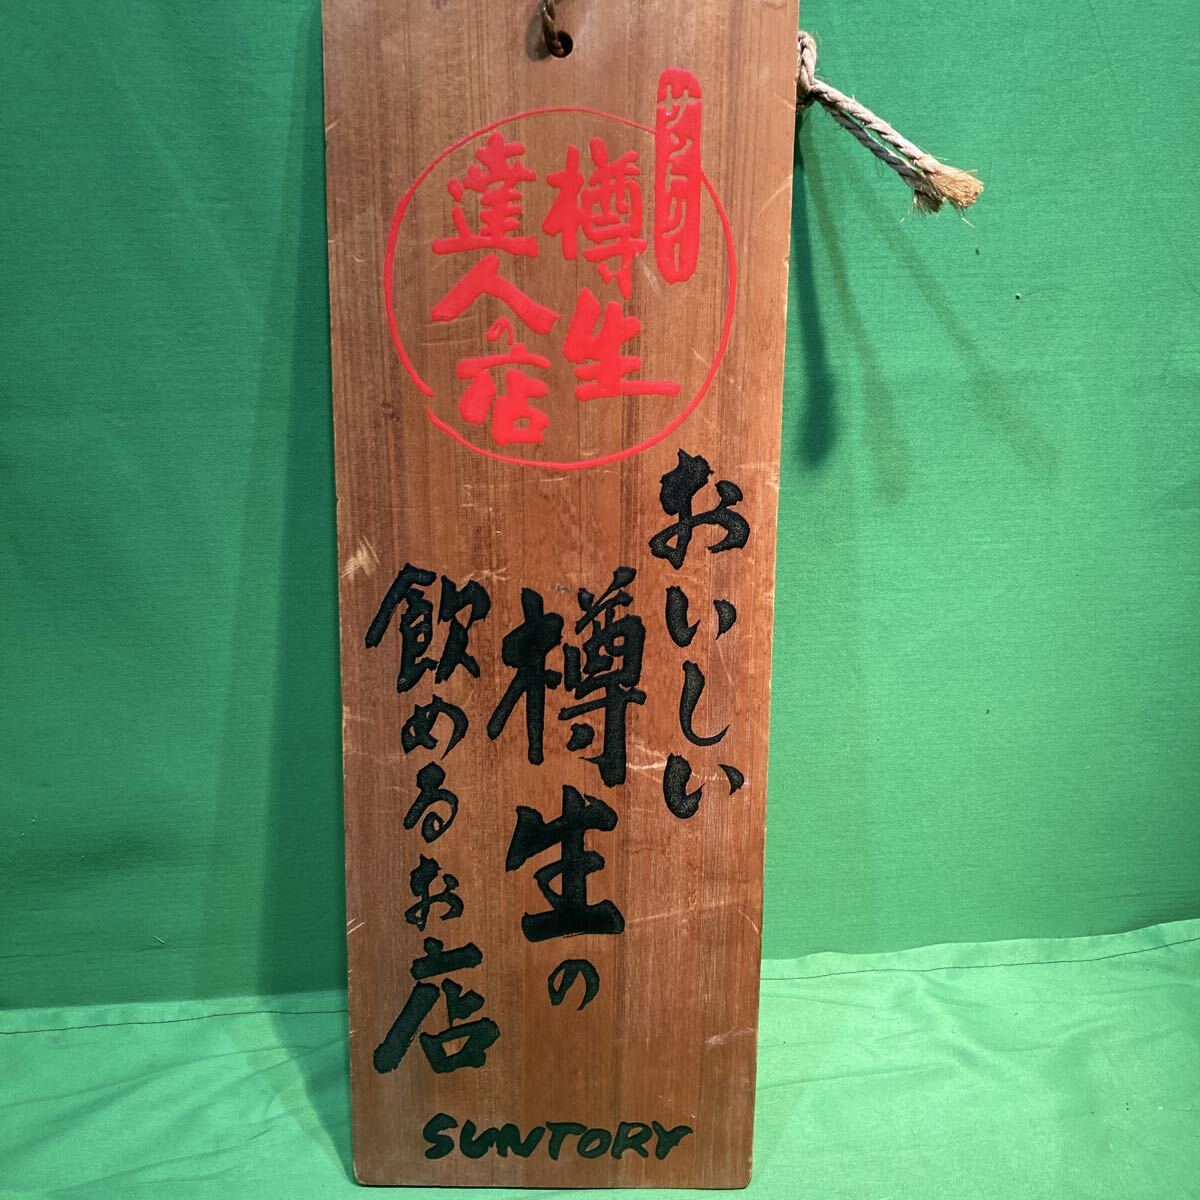 サントリー
樽生
達人の店
おいしい
樽生の
飲めるお店
SUNTORY